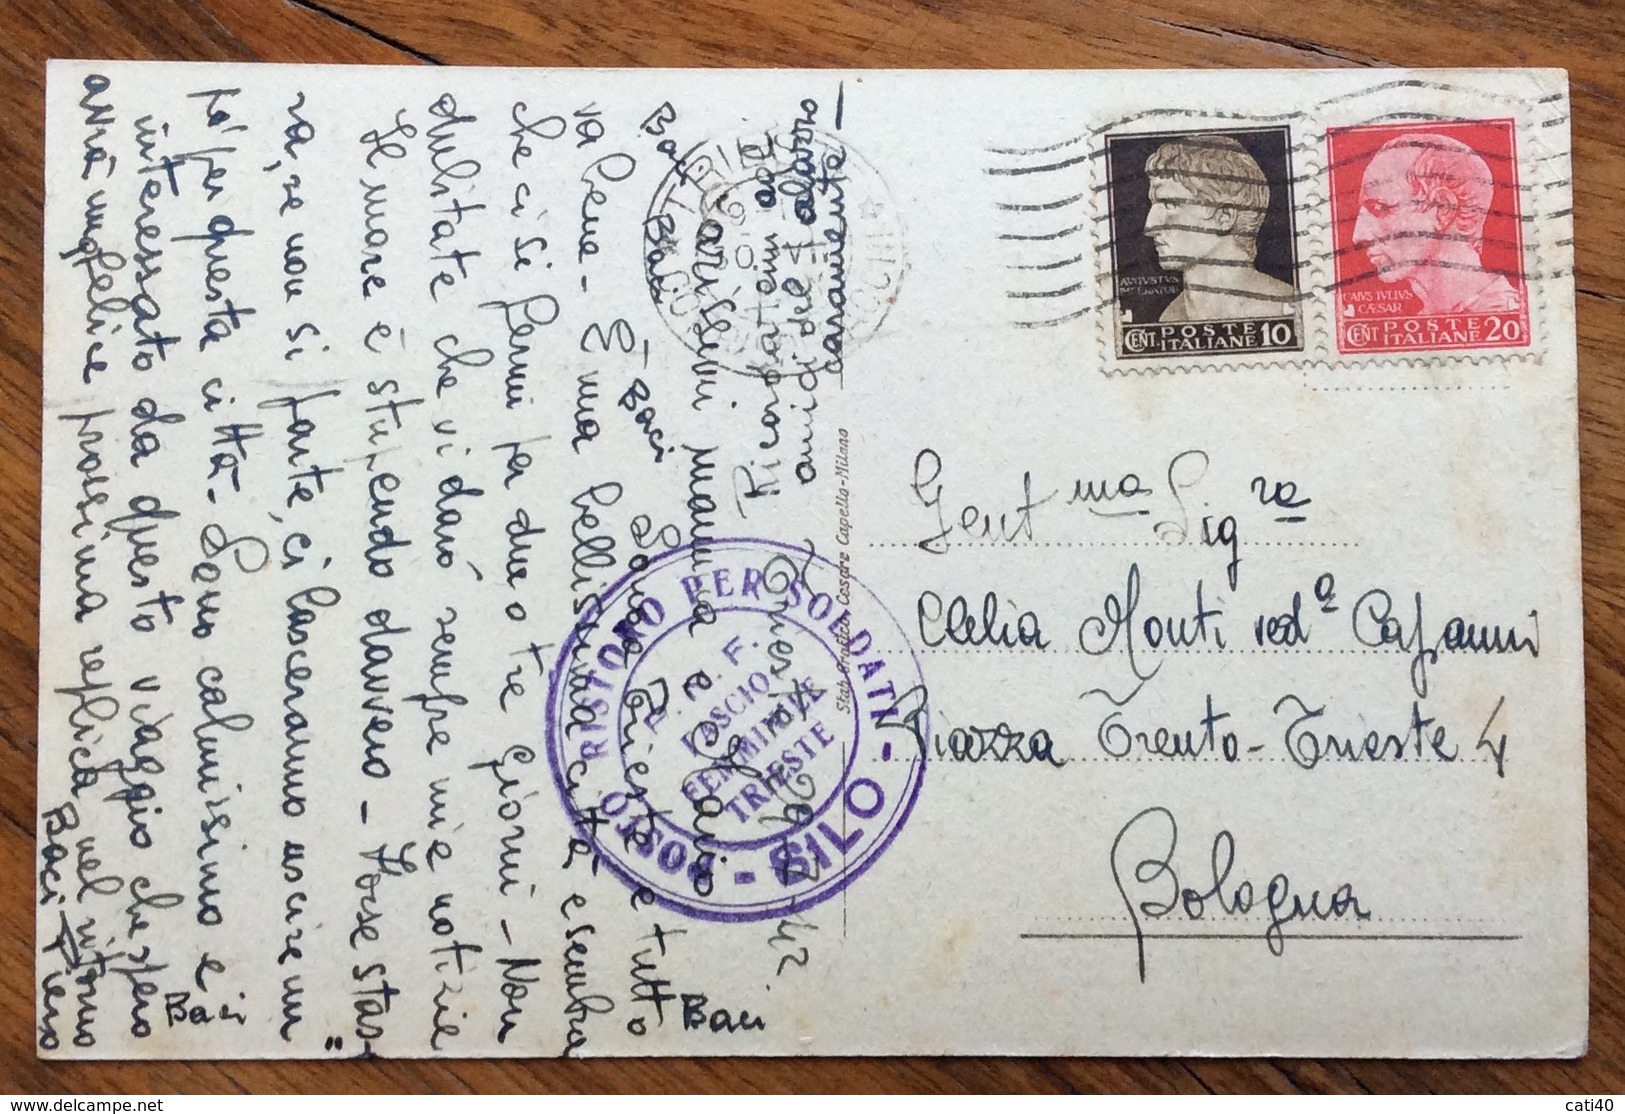 Trieste 29-4-42
Carissimi mamma e Ottavio
Sono a Trieste e tutto
va bene - È una bellissima città e sembra
che ci si fermi per due o tre giorni - Non
dubitate che vi darò sempre mie notizie
Il mare è stupendo davvero - Forse stas-
ra, se non si parte, ci lasceranno uscire un
po' per questa città - Sono calmissimo e
interessato da questo viaggio che spero
avrà un felice prossima replica nel ritorno
Baci Piero
Baci
Baci
Baci
Baci
Baci
Ricordatemi agli
amici del palazzo
caramente
RISTORO PER SOLDATI - SILO - POSTO
P. N. F.
FASCIO
FEMMINILE
TRIESTE
Stab. Grafico Cesare Capello-Milano
AVGVSTVS
IMPERATOR
CENT. POSTE ITALIANE 10
CAIVS IVLIVS
CÆSAR
CENT POSTE ITALIANE 20
Gentma Sigra
Clelia Monti veda Capanni
Piazza Trento-Trieste 4
Bologna
© delcampe.net
cati40